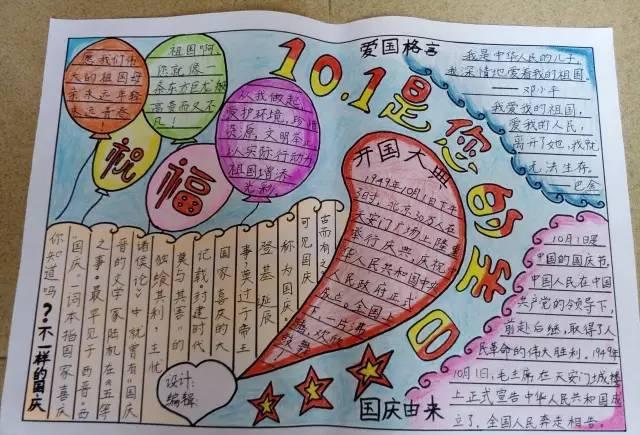 愿我们伟
大的祖国母
亲永远年轻
永远青春
！
祖国啊,
你就像一
条东方巨龙
高贵而又不
凡！
从我做起
爱护环境,珍惜
资源,文明茶
以实际行动为
祖国增添
光彩,
祝
福
10.1是您的生日
爱国格言
我是中华人民的儿子,
我深情地爱着我的祖国
——邓小平
我爱我的祖国,
爱我的人民,
离开了她,我就
无法生存。
——巴金
开国大典
1949年10月1日下午
3时,北京30万人在
天安门广场上隆重
举行庆典,庆祝中
华人民共和国中央
人民政府正式
成立。全国上
下一片沸
腾,欢欣
鼓舞！
10月1日是
中国的国庆节,
中国人民在中国
共产党的领导下,
前赴后继,取得了人
民革命的伟大胜利。1949年
10月1日,毛主席在天安门城楼
上正式宣告中华人民共和国成
立了,全国人民奔走相告。
国庆由来
设计:
编辑:
你知道吗？·不一样的国庆
“国庆”一词本指国家喜庆
之事·最早见于西晋·西
晋的文学家陆机在《五等
诸侯论》中就曾有“国庆
独飨其利,主忧
莫与其害”的
记载封建时代
国家喜庆的大
事莫过于帝王
登基诞辰
称为国庆
可见国庆
古而有之